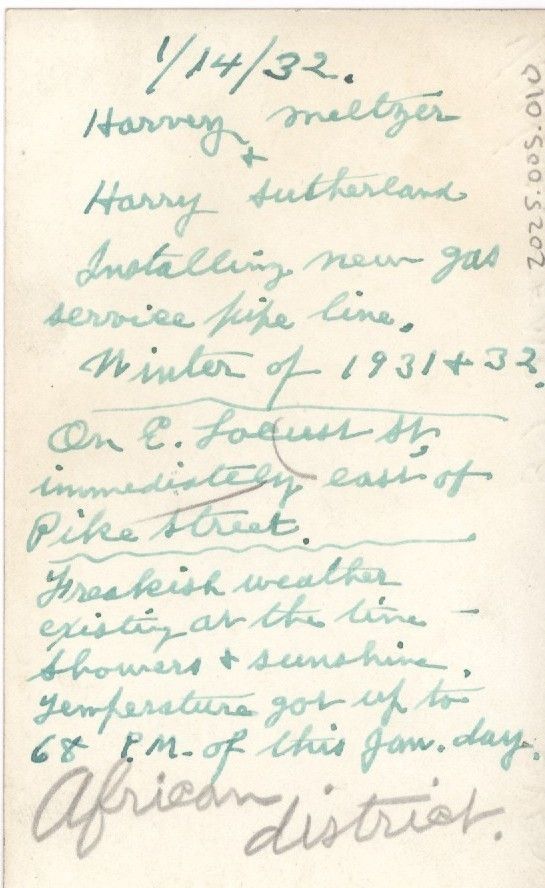 1/14/32.
Harvey Meltzer
+
Harry Sutherland
Installing new gas
service pipe line.
Winter of 1931 + 32.
On E. Locust St,
immediately east of
Pike Street.
Freakish weather
existing at the time –
Showers + sunshine.
Temperature got up to
68 P.M. of this Jan. day.
African
district.
2025.005.010